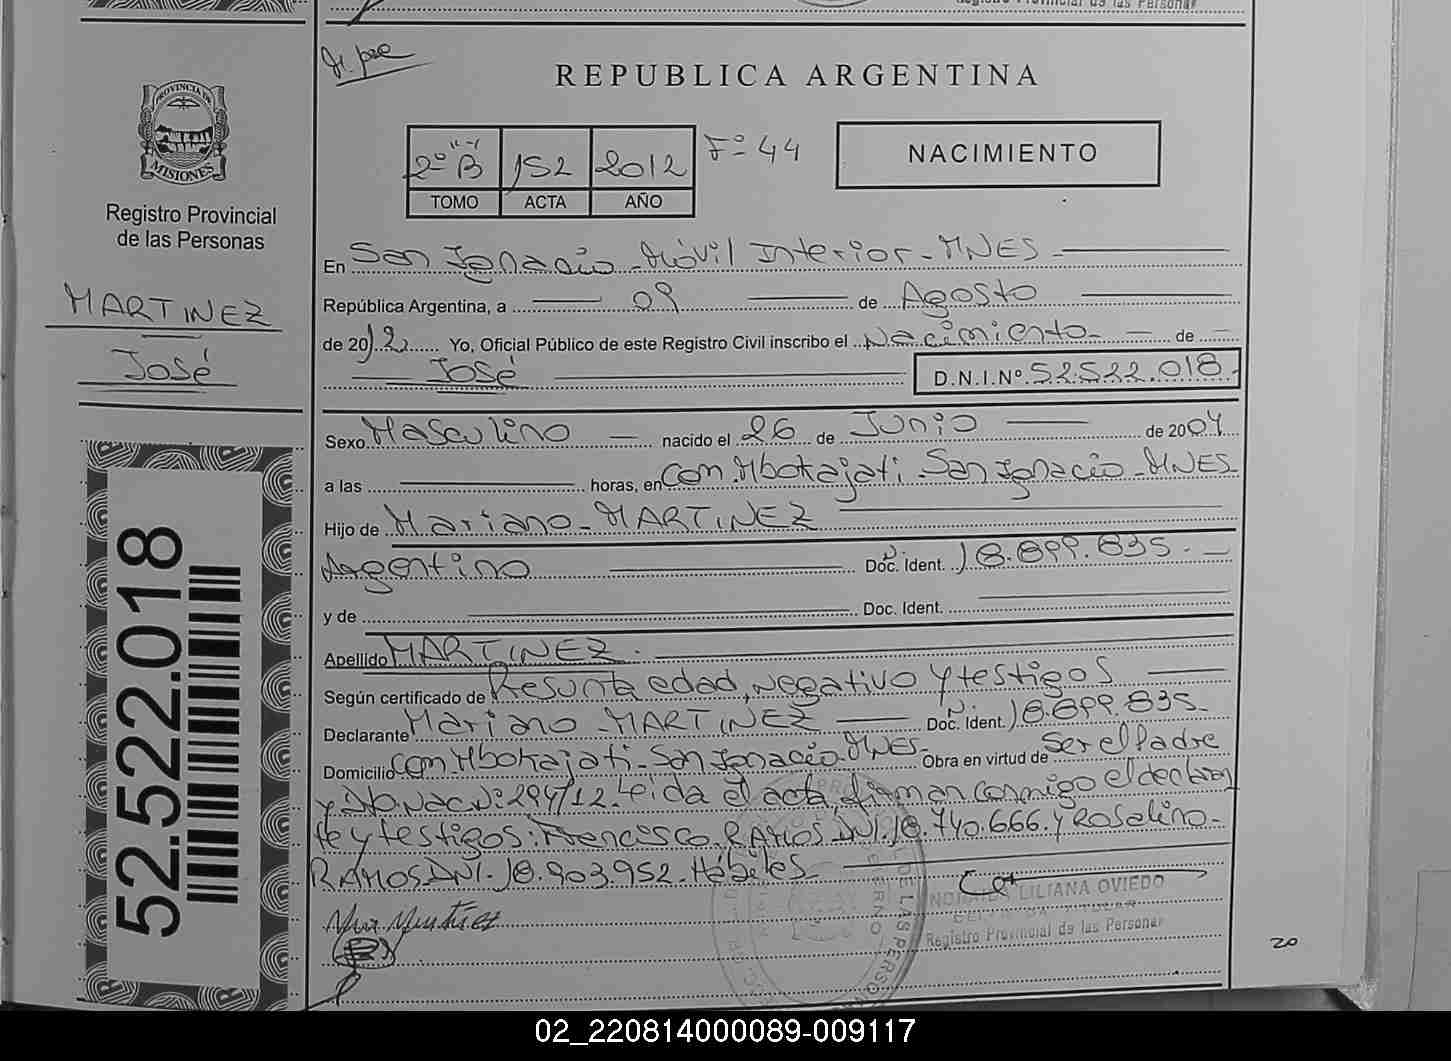 REPUBLICA ARGENTINA
PROVINCIA DE
MISIONES
Registro Provincial
de las Personas
MARTINEZ
José
52.522.018
2º "B" 152 2012 Fº 44
TOMO ACTA AÑO
NACIMIENTO
En San Ignacio - Móvil Interior - MNES
República Argentina, a 09 de Agosto
de 2012 Yo, Oficial Público de este Registro Civil inscribo el Nacimiento de
José D.N.I.Nº 52522.018.
Sexo Masculino nacido el 26 de Junio de 2004
a las horas, en Com. Mbokajati San Ignacio - MNES
Hijo de Mariano - MARTINEZ
Argentino Doc. Ident. 18.899.835.
y de Doc. Ident.
Apellido MARTINEZ.
Según certificado de Presunta edad, negativo y testigos
Declarante Mariano MARTINEZ Doc. Ident. 18.899.835
Domicilio Com. Mbokajati - San Ignacio - MNES - Obra en virtud de Ser el Padre
y Nac. Nº 294/12. Leida el acta, firman conmigo el declaran
te y testigos: Francisco RAMOS DNI. 18.740.666. y Rosalino -
RAMOS DNI. 18.903.952. Hábiles
LILIANA OVIEDO
TITULAR
Registro Provincial de las Personas
20
02_220814000089-009117